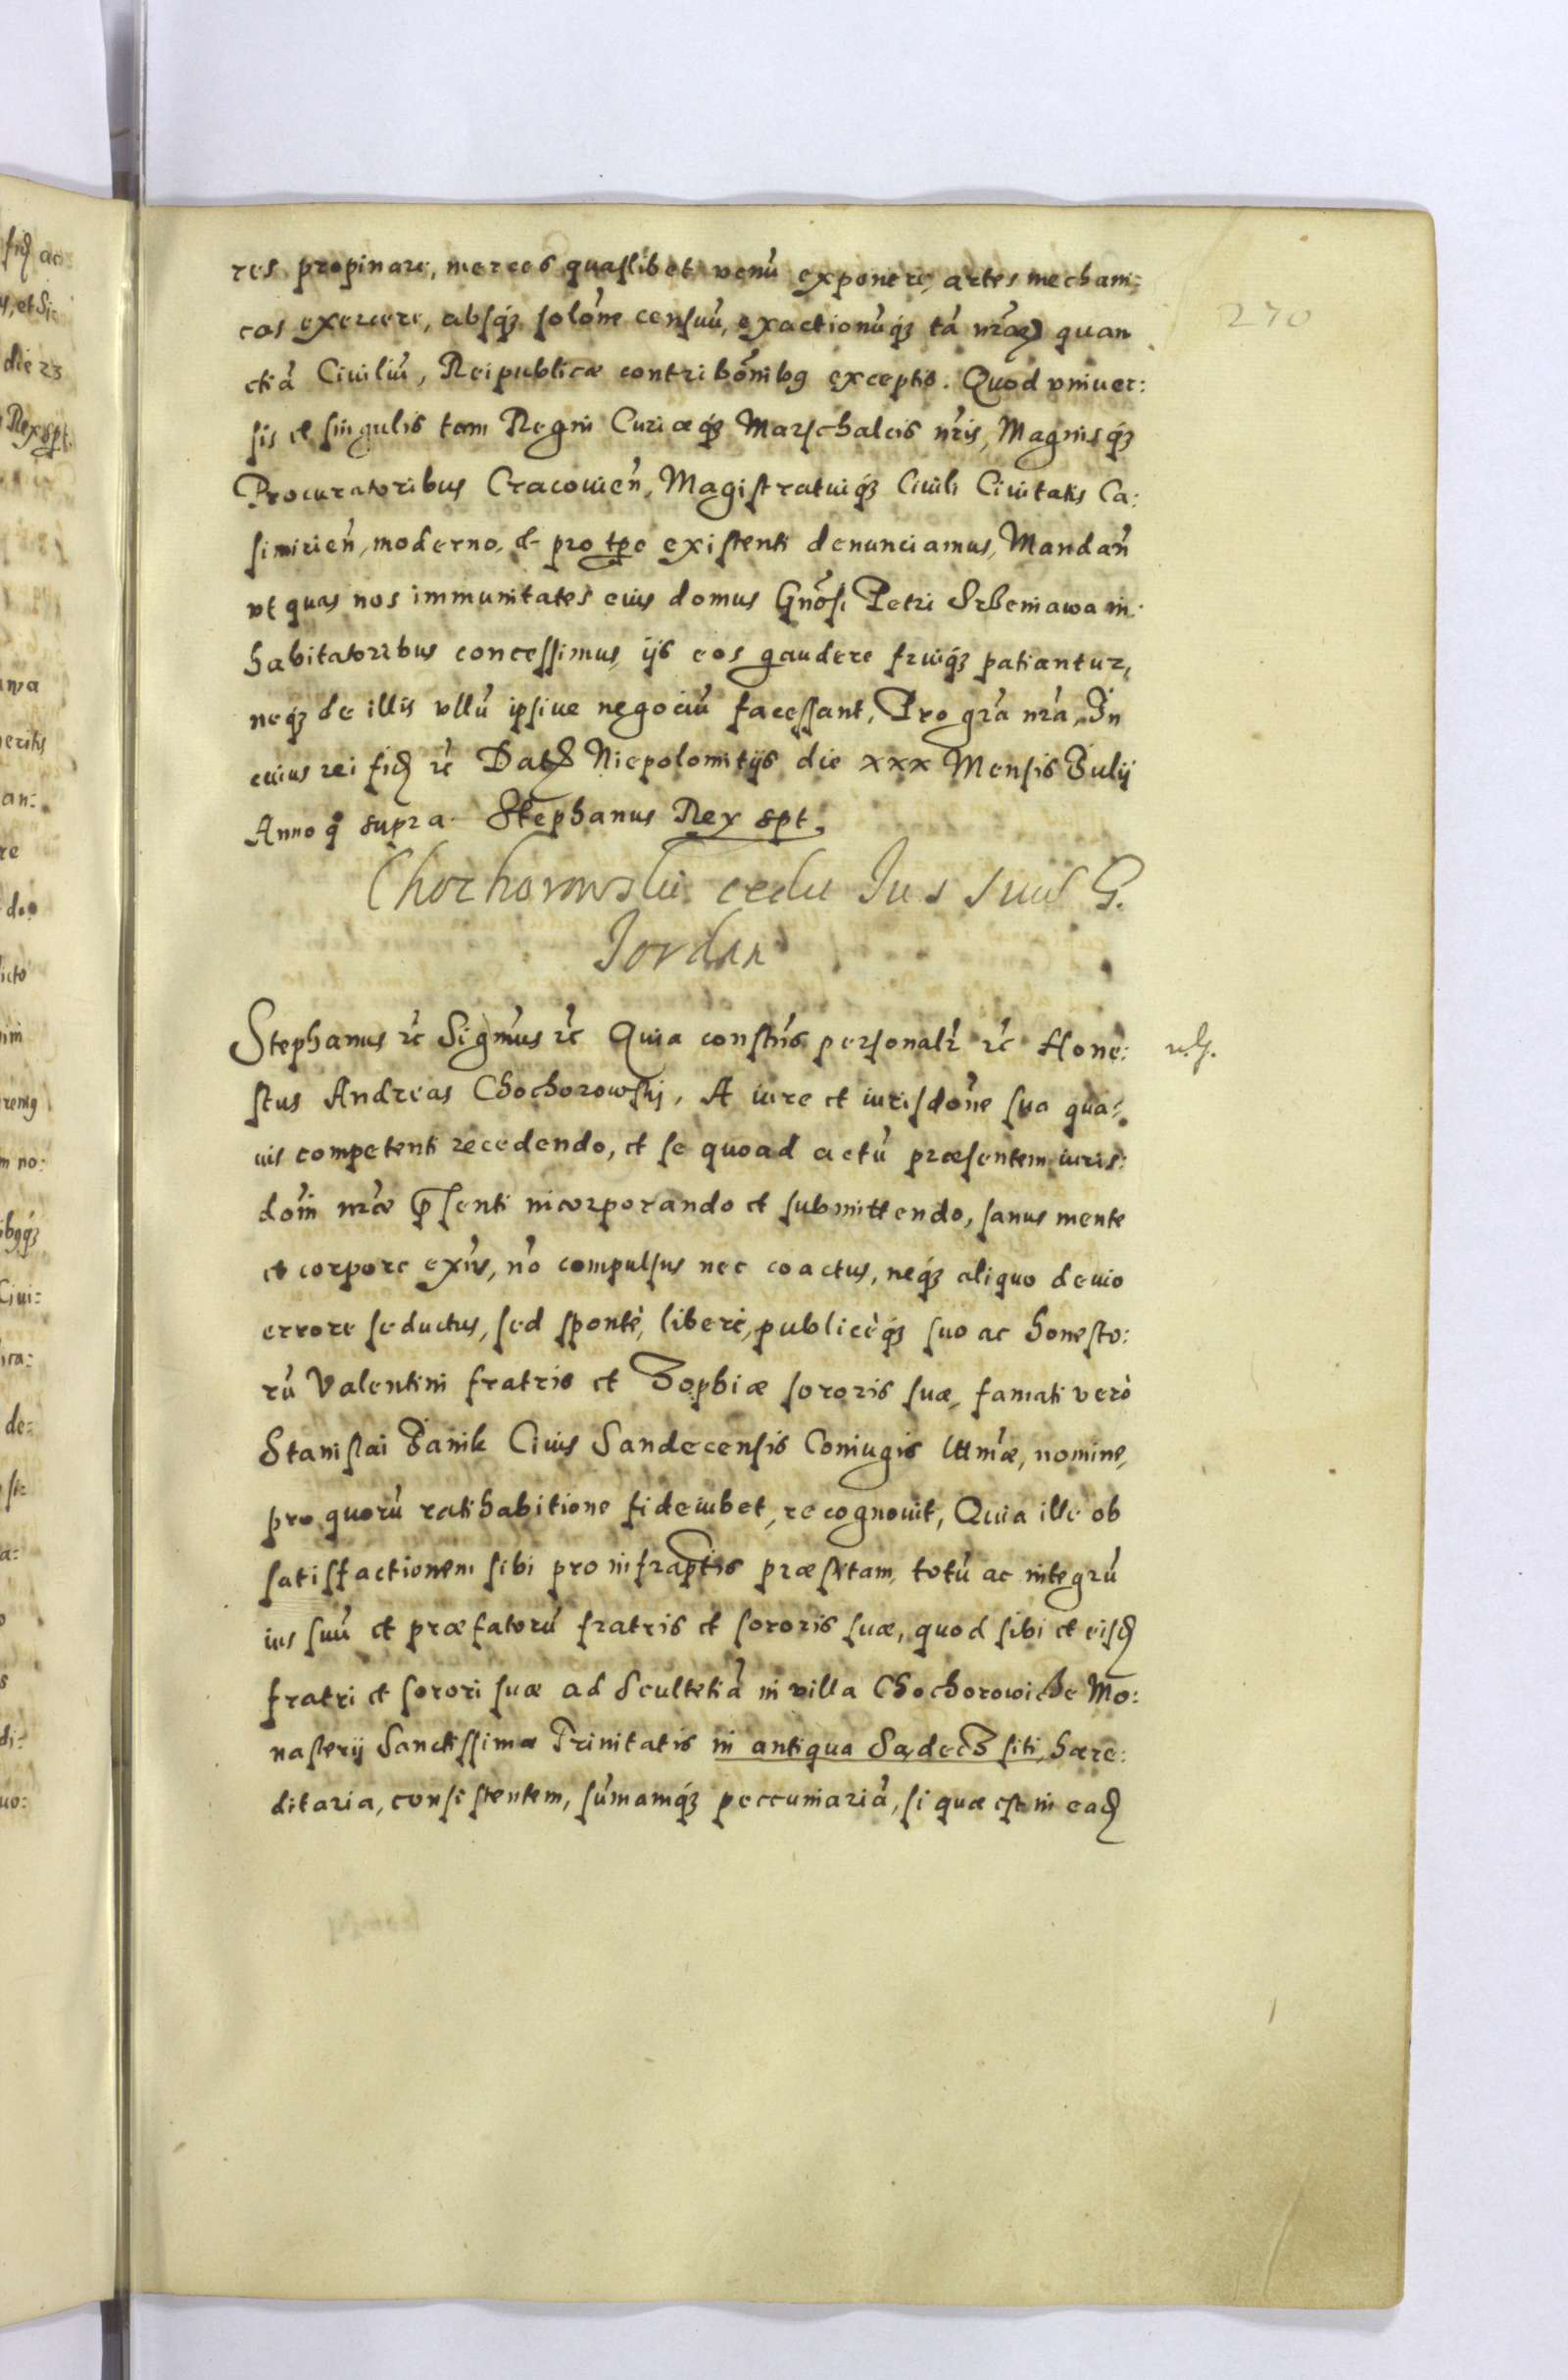 res propinare, merces quaslibet venu̅ exponere, artes mechani=
cas exercere, absq́ꝫ solo̅ne censuu̅, exactionu̅q́ꝫ ta̅ nr̅aꝝ quan
etia̅ Ciuiliu̅, Reipublicæ contribo̅nibꝰ exceptis. Quod vniuer:
sis et singulis tam Regni Curiæq́ꝫ Marschalcis nr̅is, Magnisq́ꝫ
Procuratoribus Cracouien̅, Magistratuiq́ꝫ Ciuili Ciuitatis Ca:
simirien̅, moderno, et pro tp̅e existenti denunciamus, Mandan̅
vt quas nos immunitates eius domus Gn̅osi Petri Srbeniawa in:
habitatoribus concessimus, ijs eos gaudere fruiq́ꝫ patiantur,
neq́ꝫ de illis vllu̅ ipsiue negociu̅ facessant, Pro gr̅a nr̅a, In
cuius rei fid ꝛc̅ Dat Niepolomitijs die xxx Mensis Julij
Anno q̊ supra. Stephanus Rex spt.
Chochorowski cedit Jus suu̅ G.
Jordan
Stephanus ꝛc̅ Sigm̅us ꝛc̅ Quia constn̅s personalr̅ ꝛc̅ Hone:
stus Andreas Chochorowskj, A iure et iurisdo̅ne sua qua:
uis competenti recedendo, et se quoad actu̅ præsentem iuris:
do̅ni nr̅æ p̅senti incorporando et submittendo, sanus mente
et corpore exn̅s, no̅ compulsus nec coactus, neq́ꝫ aliquo deuio
errore seductus, sed spontè, liberè, publicèq́ꝫ suo ac honesto:
ru̅ Valentini fratris et Zophiæ sororis suæ, famati verò
Stanislai Janik Ciuis Sandecensis Coniugis lttm̅æ, nomine,
pro quoru̅ ratihabitione fideiubet, recognouit, Quia ille ob
satisfactionem sibi pro infrap̅tis præstitam, totu̅ ac integru̅
ius suu̅ et præfatoru̅ fratris et sororis suæ, quod sibi et eisd
fratri et sorori suæ ad Scultetia̅ in villa Chochorowiche Mo:
nasterij Sanctissimæ Trinitatis in antiqua Sądecz siti, hære:
ditaria, consistentem, su̅mamq́ꝫ peccuniaria̅, si quæ est in ead
270